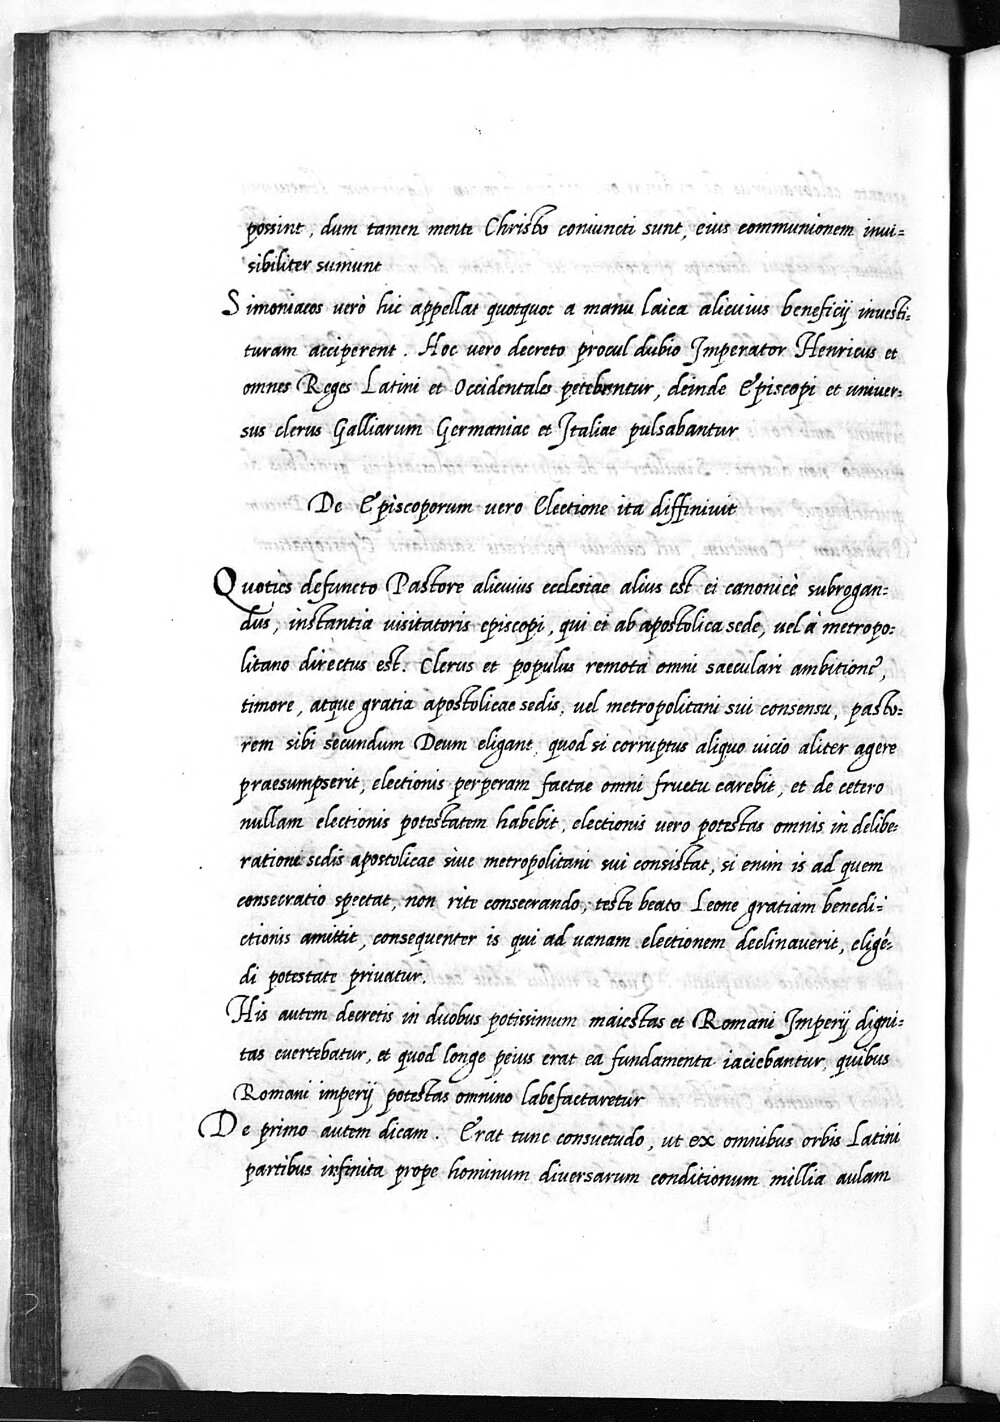 possint, dum tamen mente Christo coniuncti sunt, eius communionem invi=
sibiliter sumunt
Simoniacos verò hic appellat quotquot a manu laica alicuius beneficij investi=
turam acciperent. Hoc vero decreto procul dubio Imperator Henricus et
omnes Reges Latini et Occidentales petebantur, deinde Episcopi et univer=
sus clerus Galliarum Germaniae et Italiae pulsabantur
De Episcoporum vero Electione ita diffinivit
Quoties defuncto Pastore alicuius ecclesiae alius est ei canonicè subrogan=
dus, instantia visitatoris episcopi, qui ei ab apostolica sede, vel à metropo=
litano directus est. Clerus et populus remota omni saeculari ambitione,
timore, atque gratia apostolicae sedis, vel metropolitani sui consensu, pasto=
rem sibi secundum Deum eligant, quod si corruptus aliquo vicio aliter agere
praesumpserit, electionis perperam factae omni fructu carebit, et de cetero
nullam electionis potestatem habebit, electionis vero potestas omnis in delibe=
rationi sedis apostolicae sive metropolitani sui consistat, si enim is ad quem
consecratio spectat, non rite consecrando, teste beato Leone gratiam benedi=
ctionis amittit, consequenter is qui ad vanam electionem declinaverit, eligē=
di potestate privatur.
His autem decretis in duobus potissimum maiestas et Romani Imperij digni=
tas evertebatur, et quod longe peius erat ea fundamenta iaciebantur, quibus
Romani imperij potestas omnino labefactaretur
De primo autem dicam. Erat tunc consuetudo, ut ex omnibus orbis Latini
partibus infinita prope hominum diversarum conditionum millia aulam